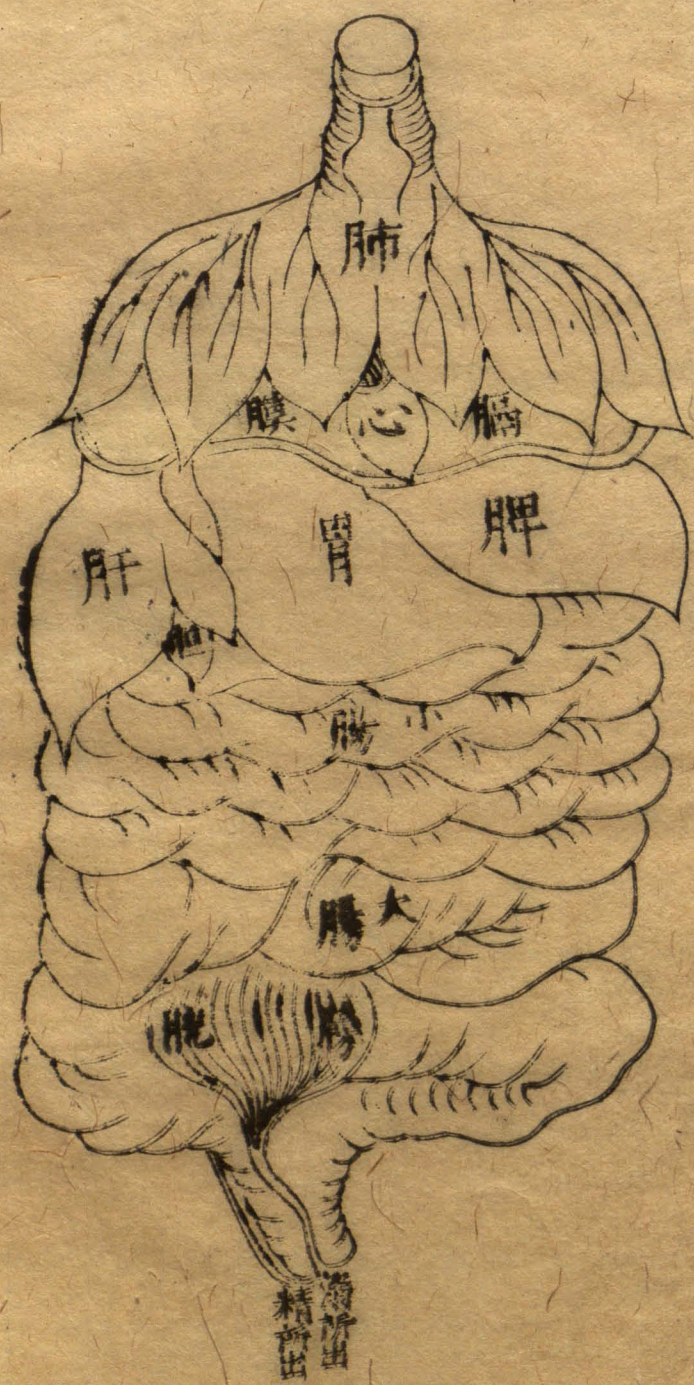 肺
膈膜
心
脾
胃
肝
胆
小腸
大腸
膀胱
溺所出
精所出